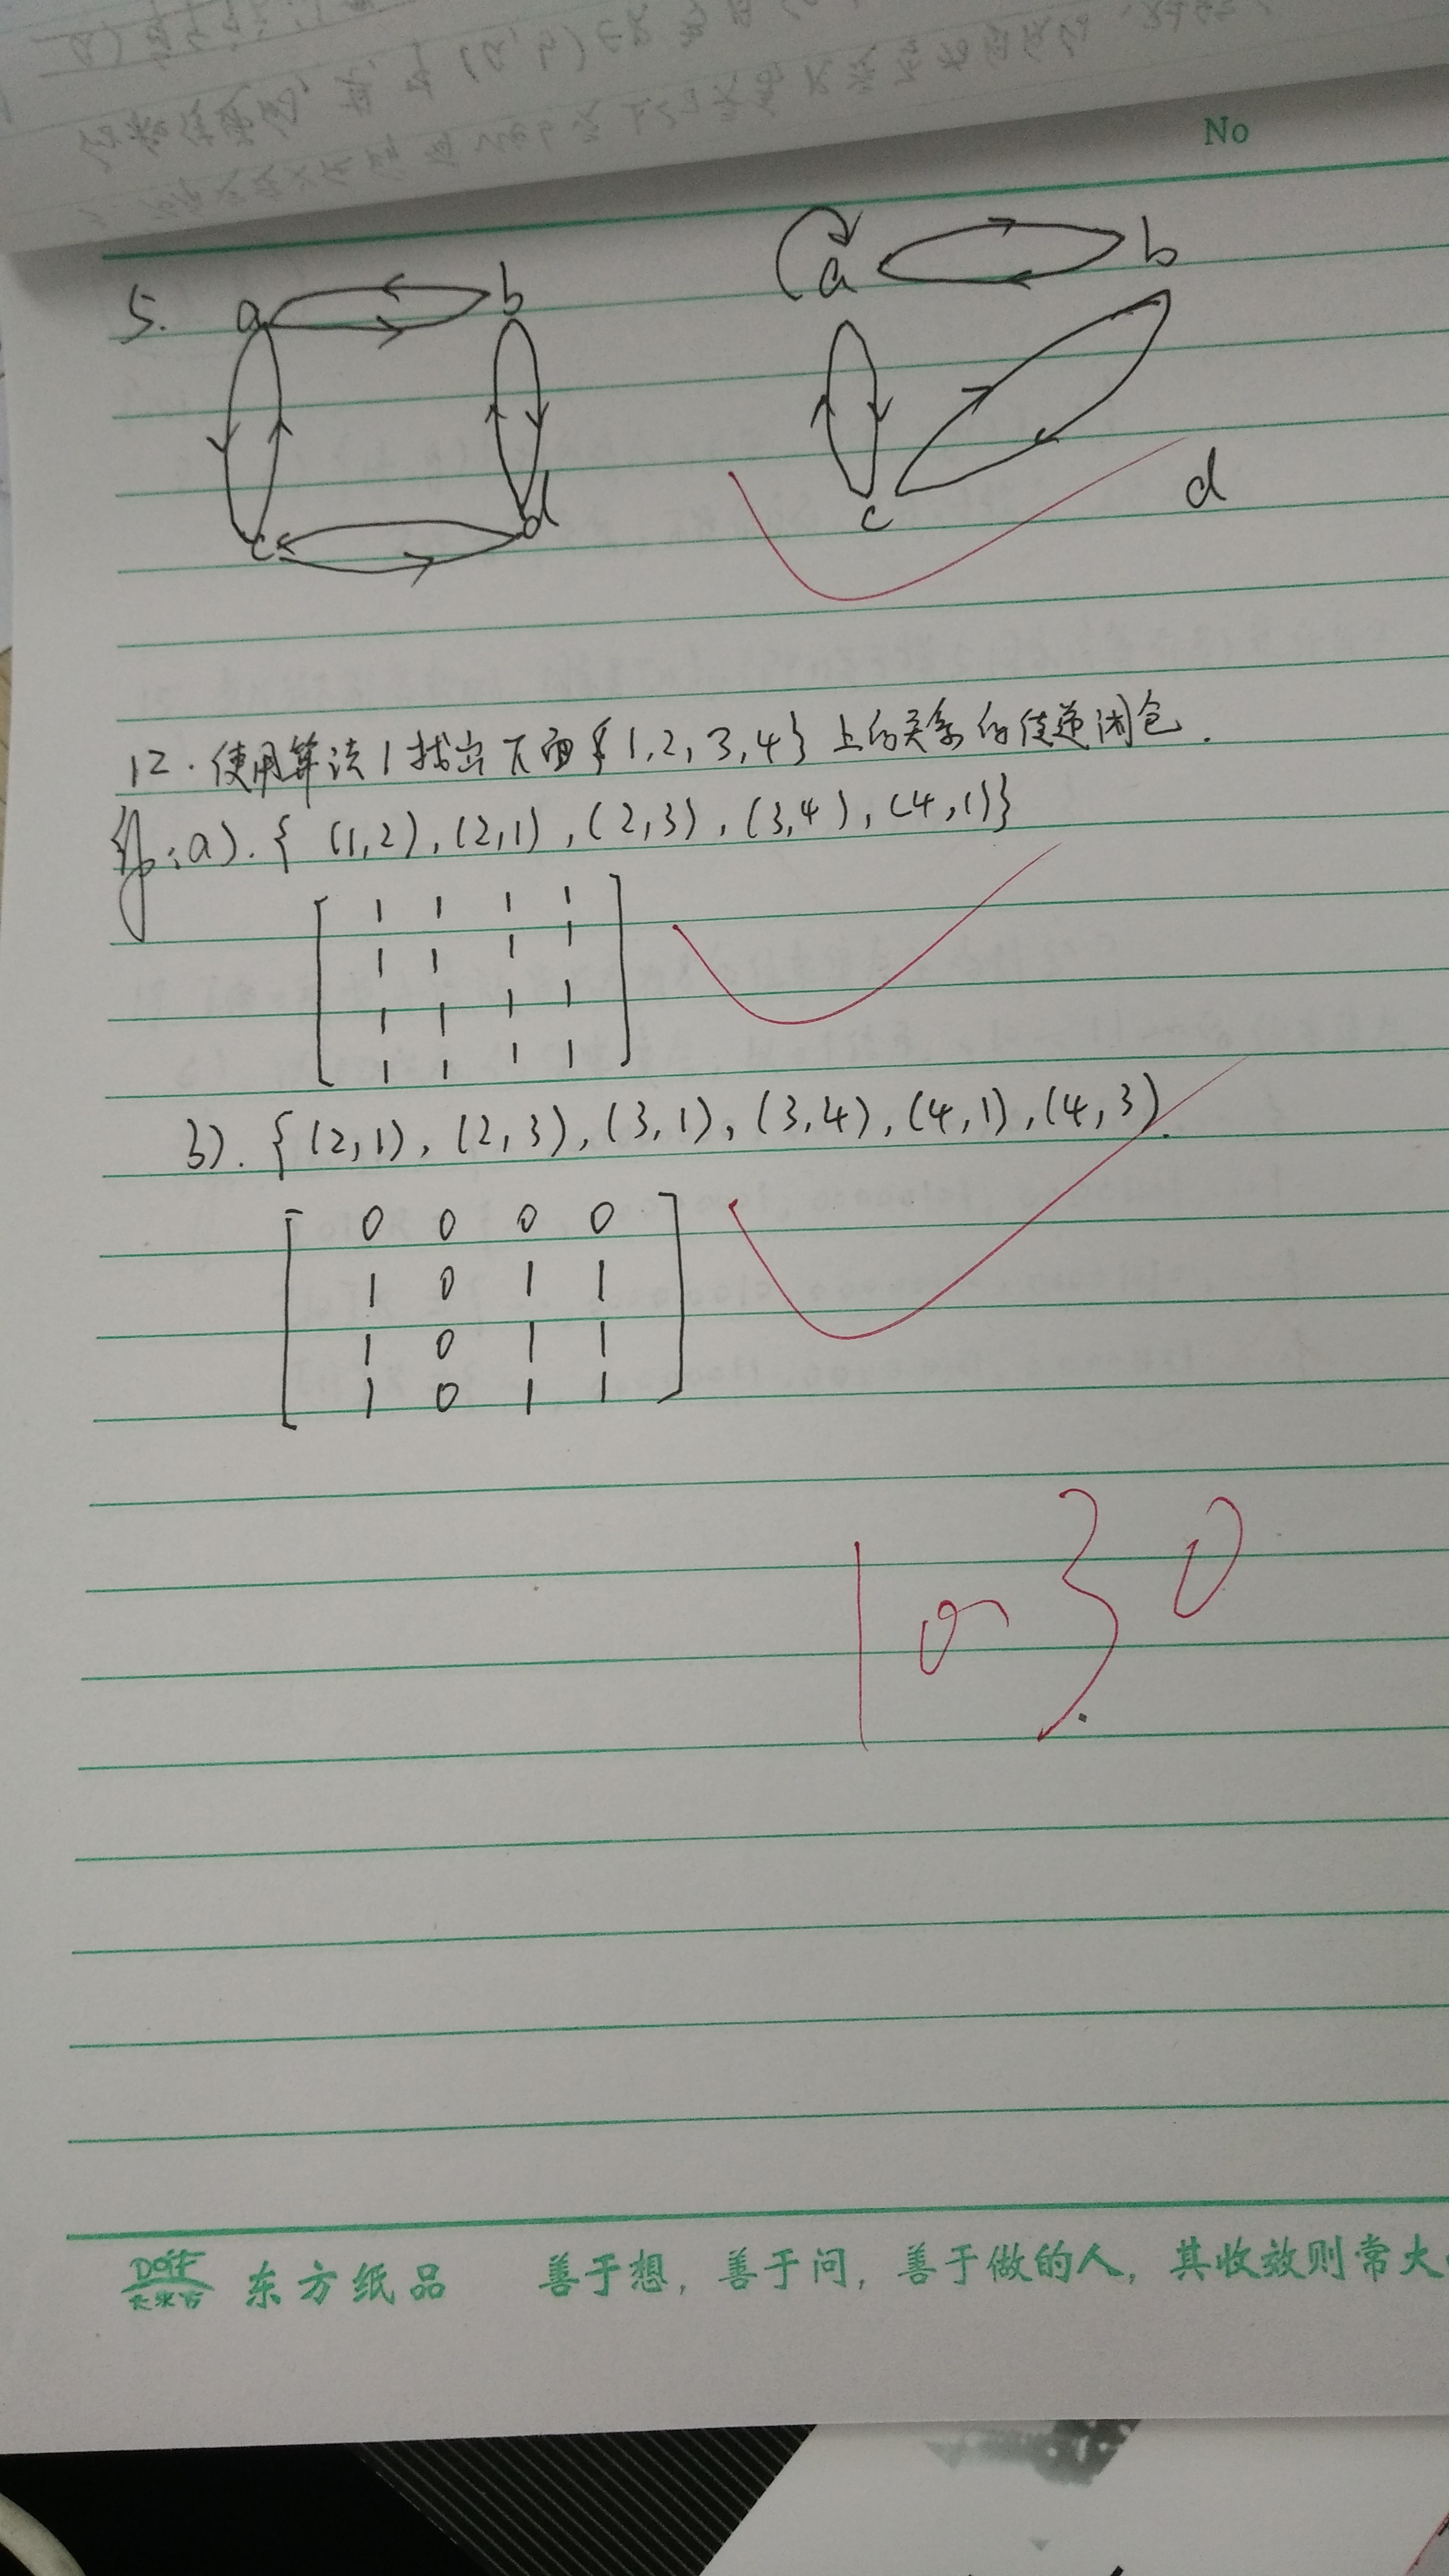 No
5. a b a b
c d c d
12. 使用算法1找出下面{1,2,3,4}上的关系的传递闭包.
解:a). { (1,2), (2,1), (2,3), (3,4), (4,1)}
1 1 1 1
1 1 1 1
1 1 1 1
1 1 1 1
b). {(2,1), (2,3), (3,1), (3,4), (4,1), (4,3).
0 0 0 0
1 0 1 1
1 0 1 1
1 0 1 1
10 30
东方纸品 善于想, 善于问, 善于做的人, 其收效则常大